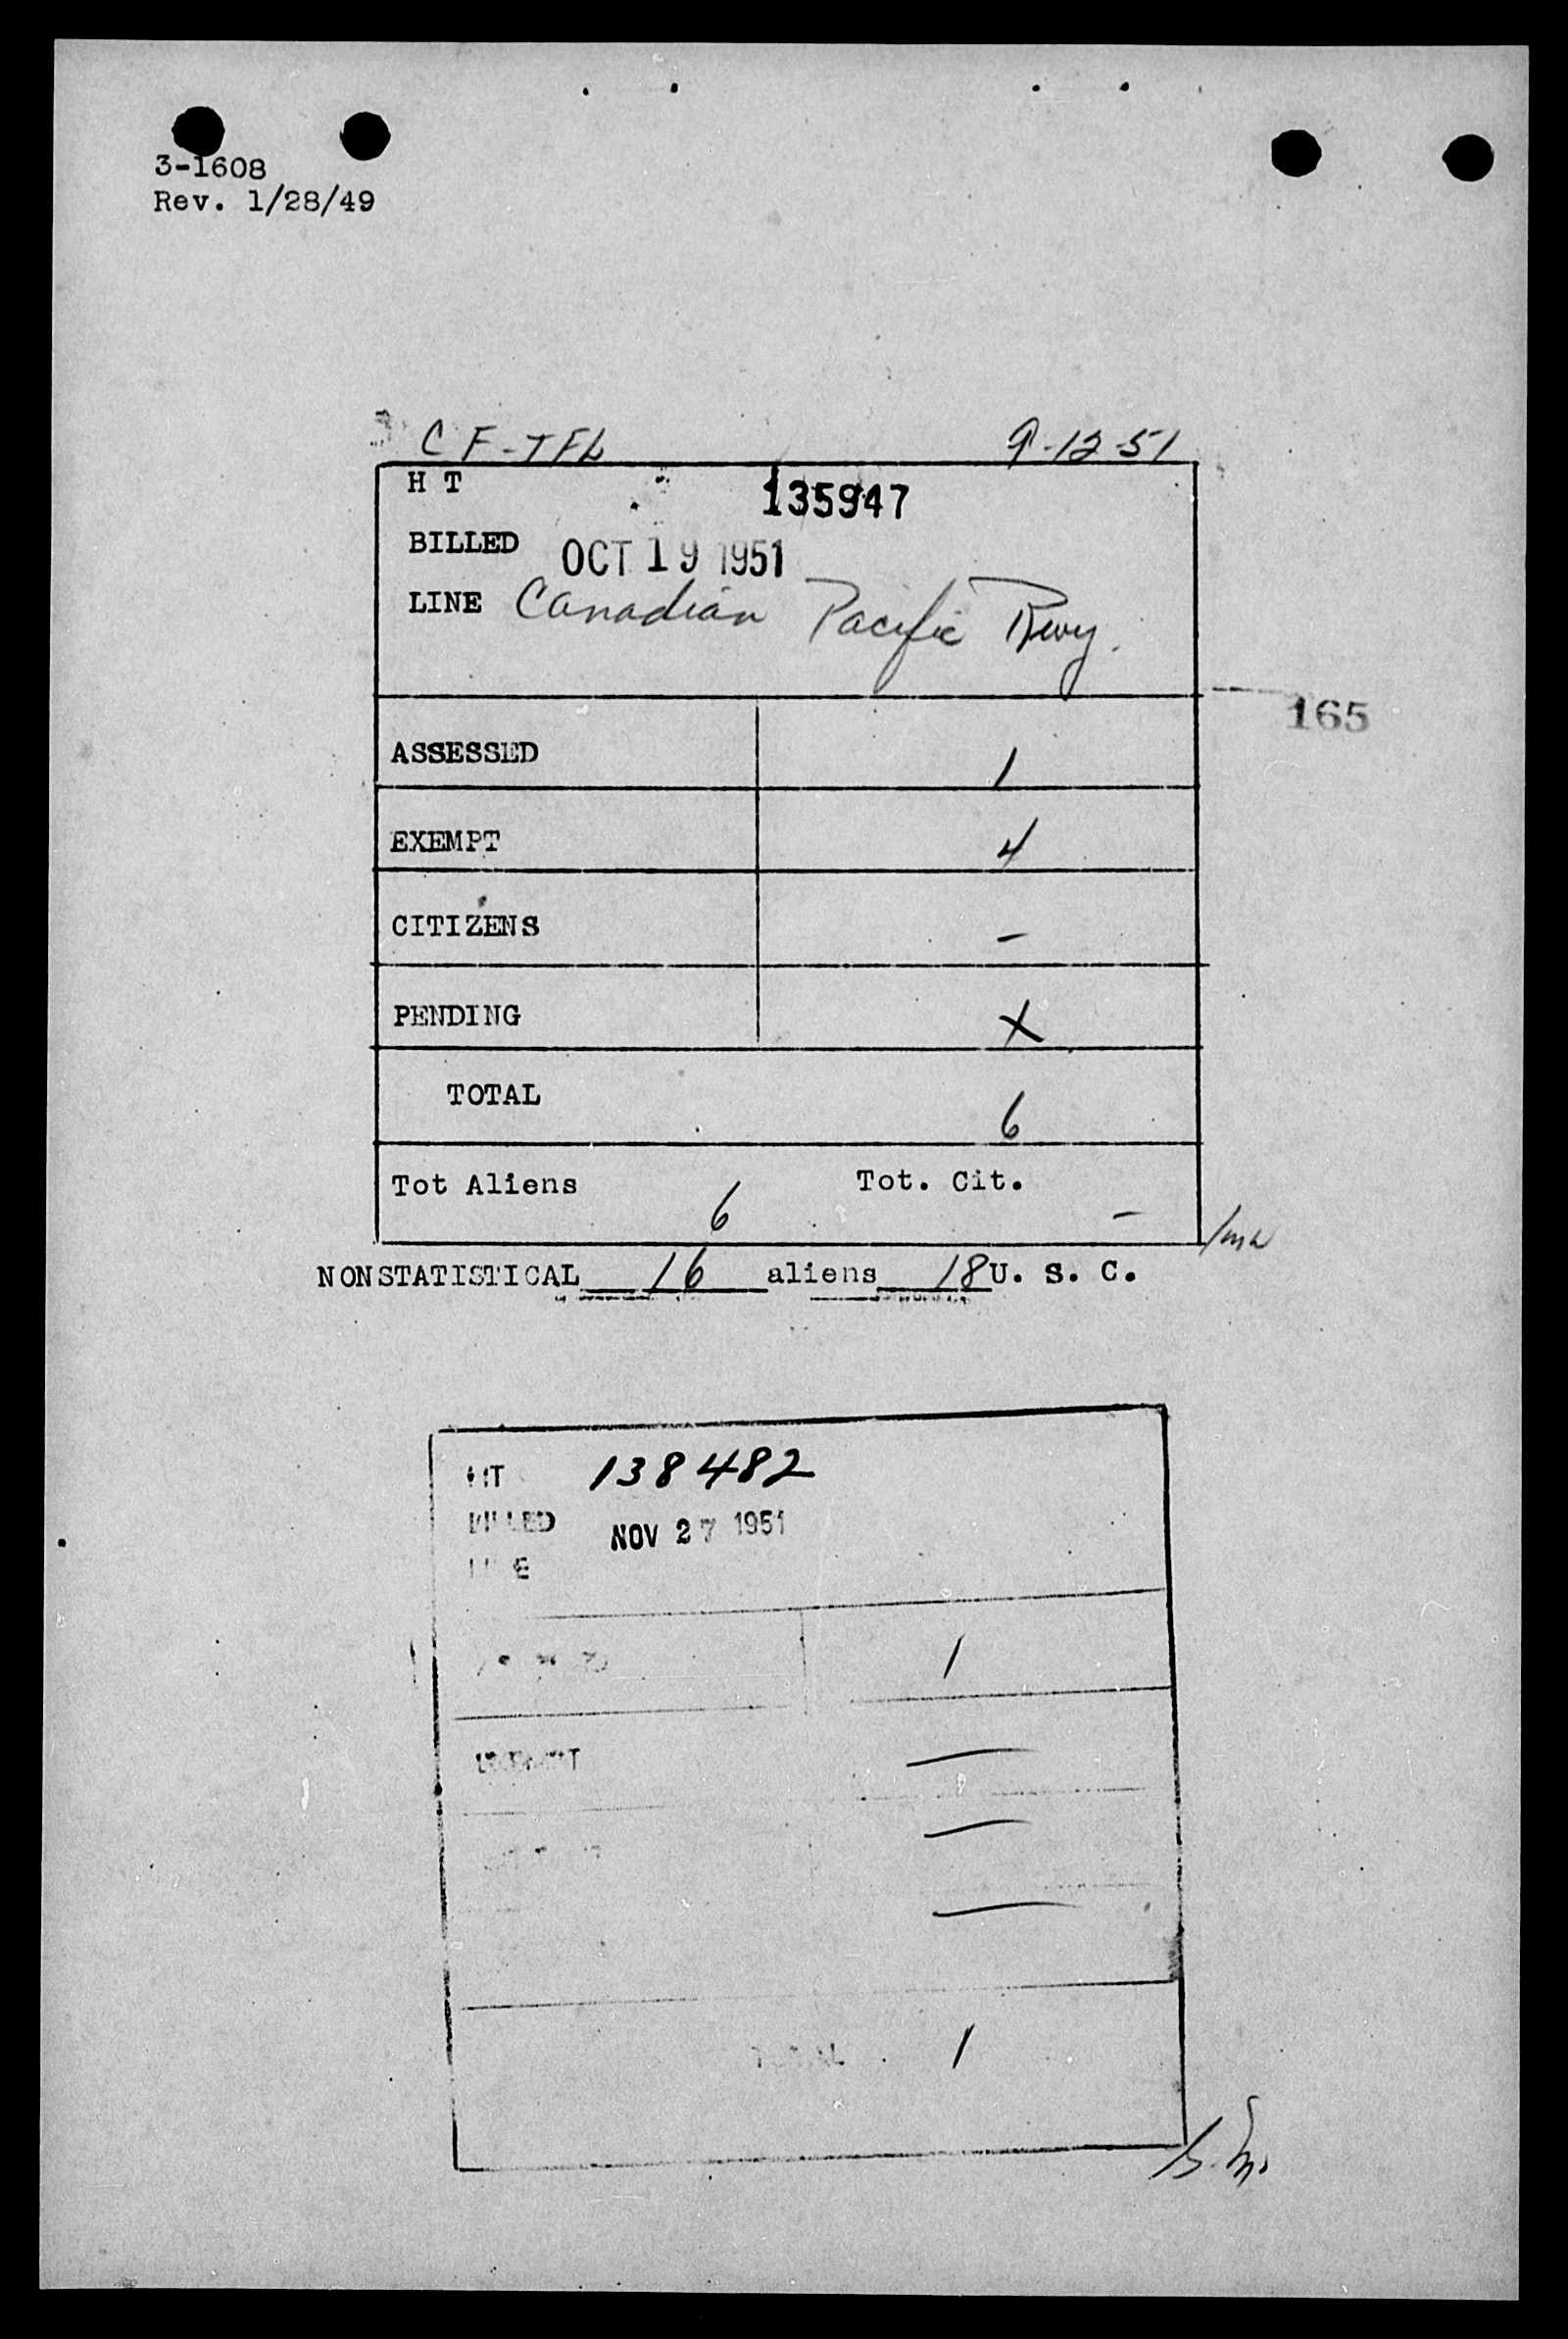 3-1608
Rev. 1/28/49
CF-TFL 9-12-51
H T 135947
BILLED OCT 19 1951
LINE Canadian Pacific Rwy.
165
ASSESSED 1
EXEMPT 4
CITIZENS -
PENDING X
TOTAL 6
Tot Aliens 6 Tot. Cit. -
NONSTATISTICAL 16 aliens 18 U. S. C.
HT 138482
BILLED NOV 27 1951
LINE
1
—
—
—
TOTAL 1